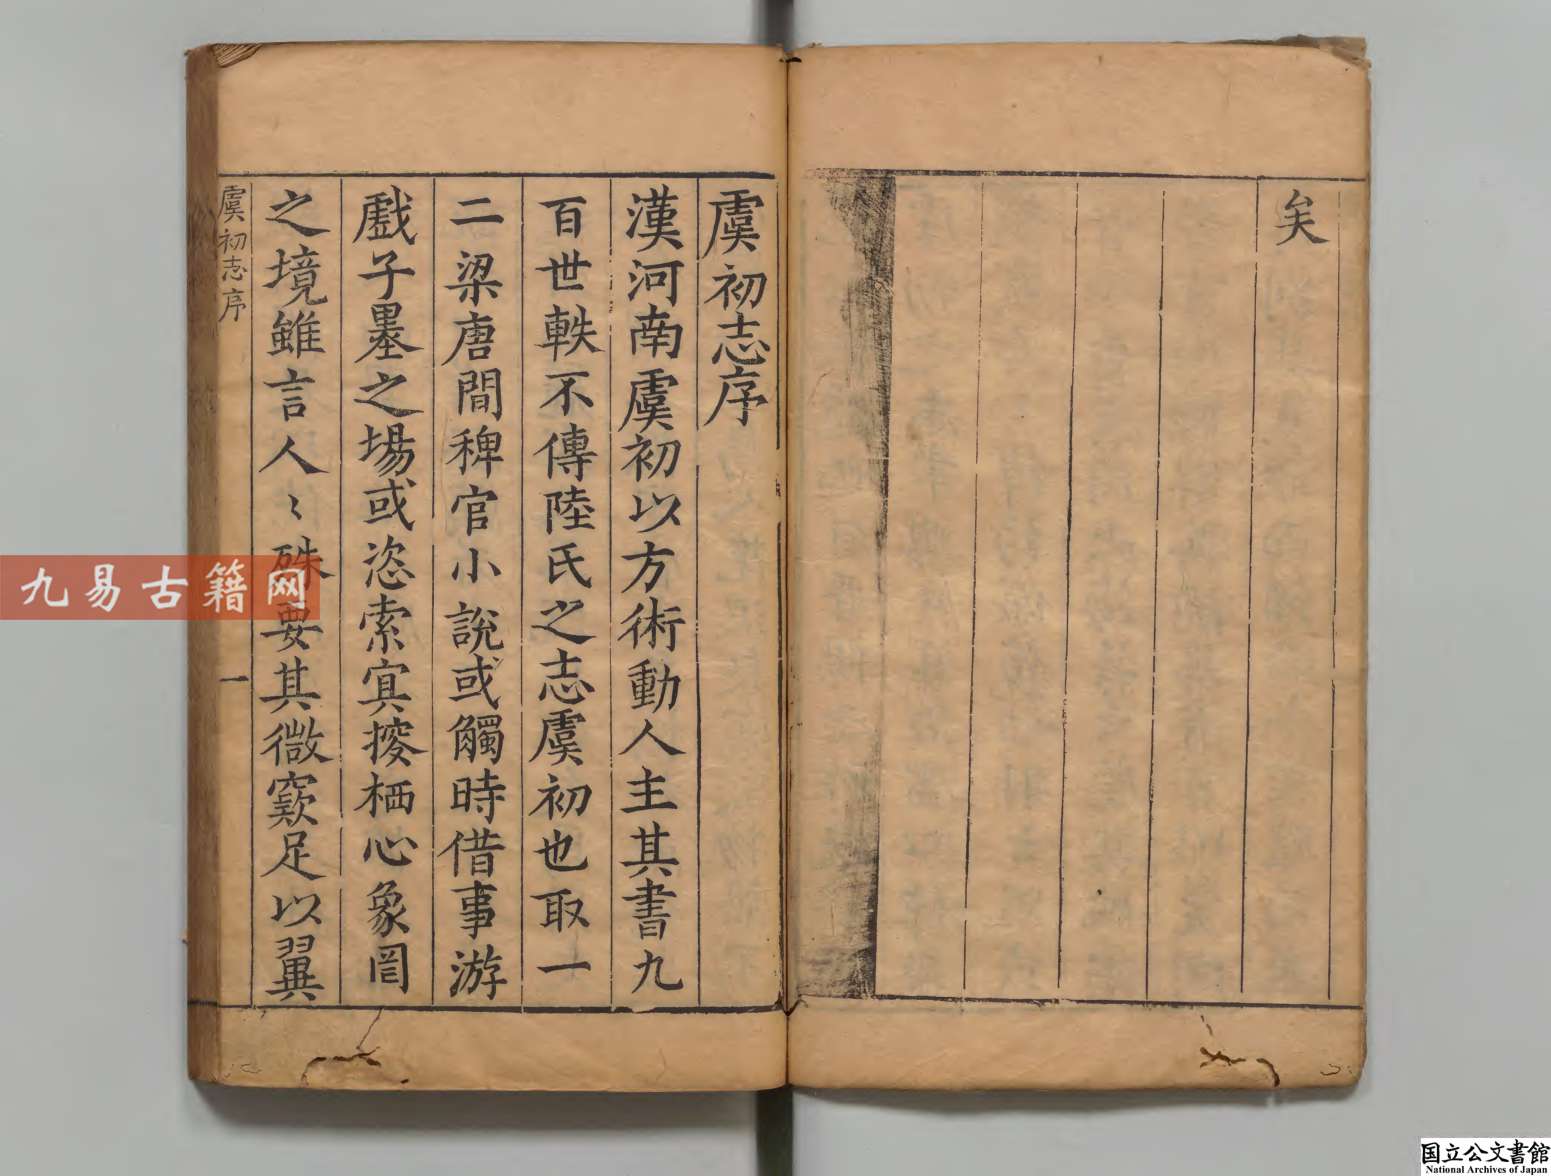 矣
虞初志序
漢河南虞初以方術動人主其書九
百世軼不傳陸氏之志虞初也取一
二梁唐間稗官小說或觸時借事游
戲子墨之場或恣索冥搜栖心象罔
之境雖言人〻殊要其微窾足以翼
虞初志序
一
九易古籍网
国立公文書館
National Archives of Japan